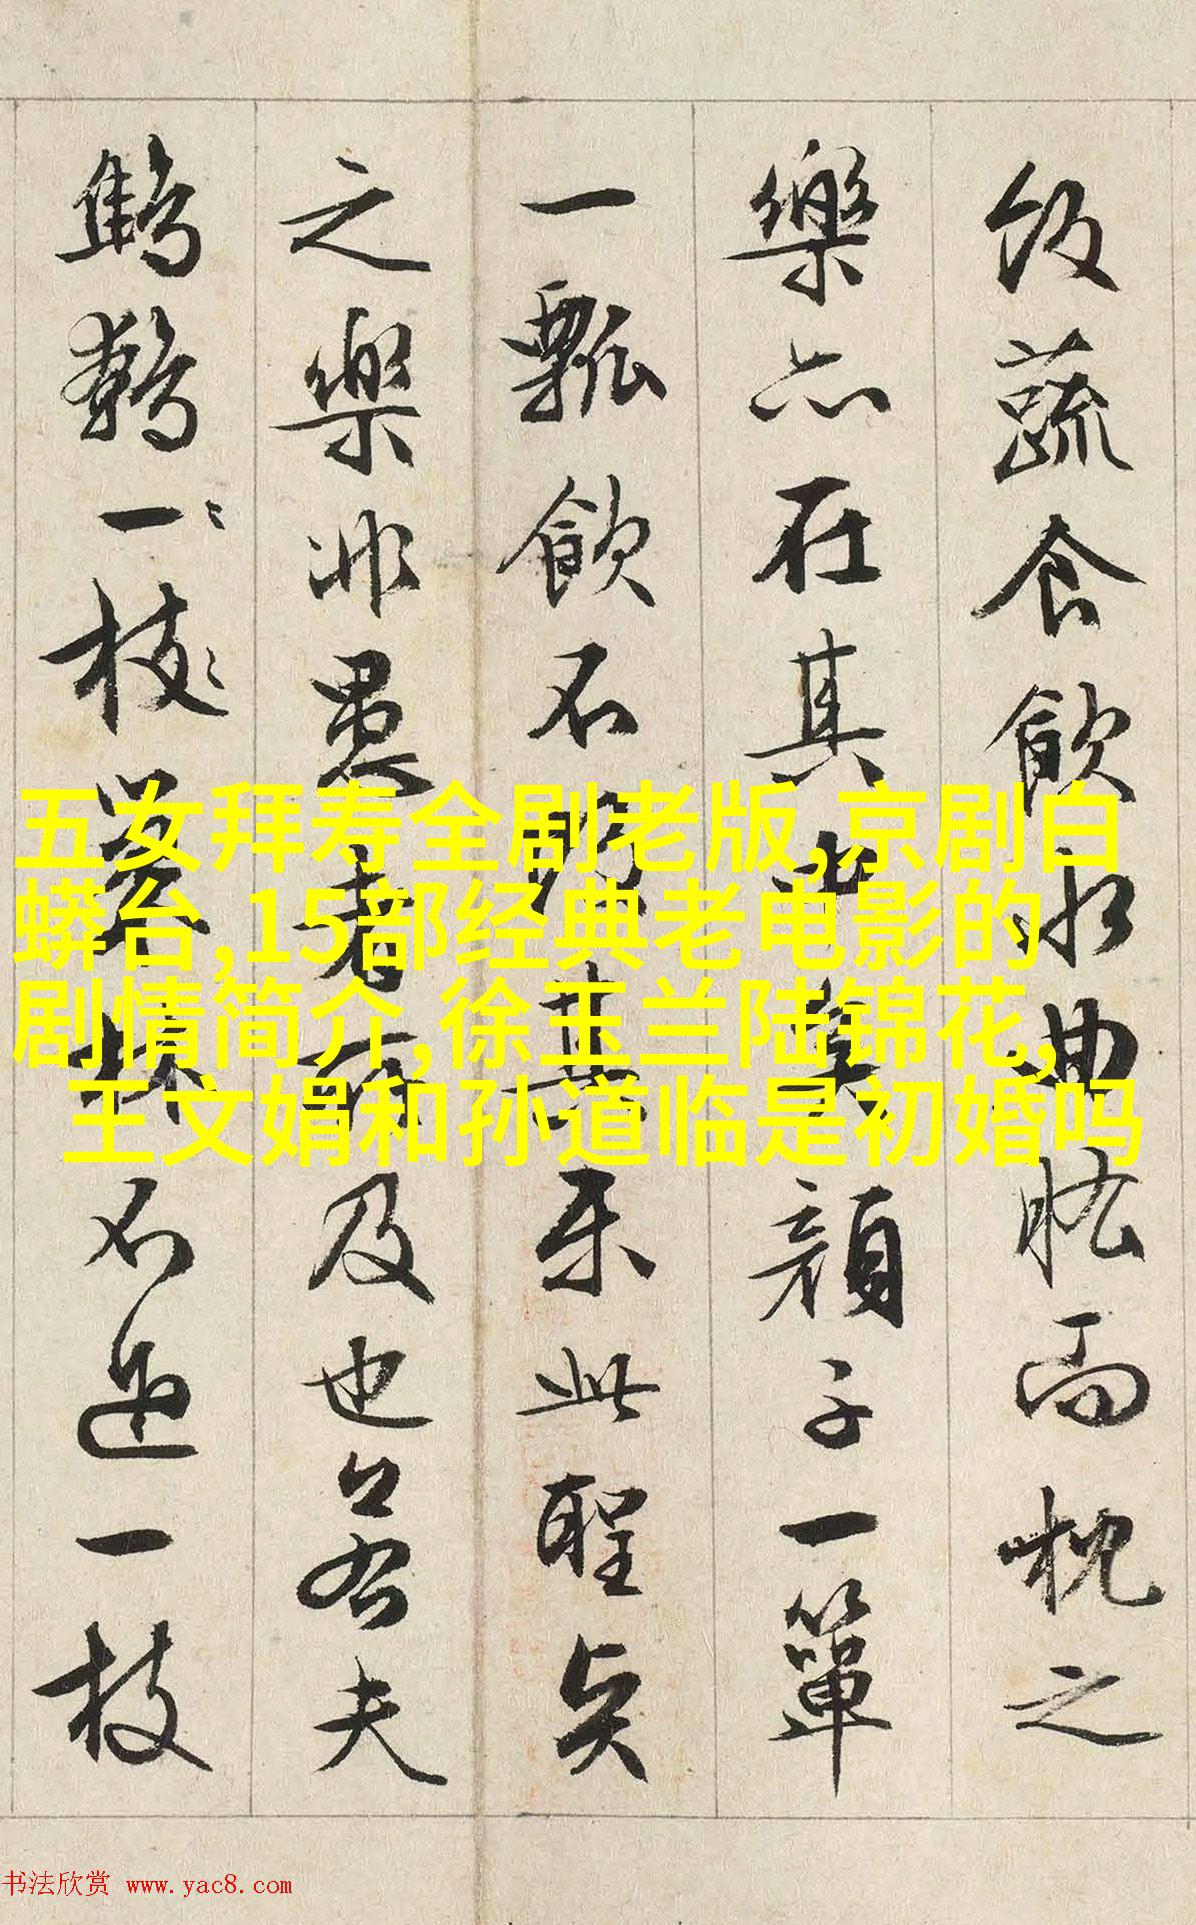 飯蔬食飲水曲肱而枕之
樂亦在其中矣顏子一簞
一瓢飲不改其樂此聖賢
之樂非愚者所及也若夫
鷦鷯一枝巢林不過一枝
五女拜寿全剧老版,京剧白
蟒台,15部经典老电影的
剧情简介,徐玉兰陆锦花,
王文娟和孙道临是初婚吗
书法欣赏 www.yac8.com